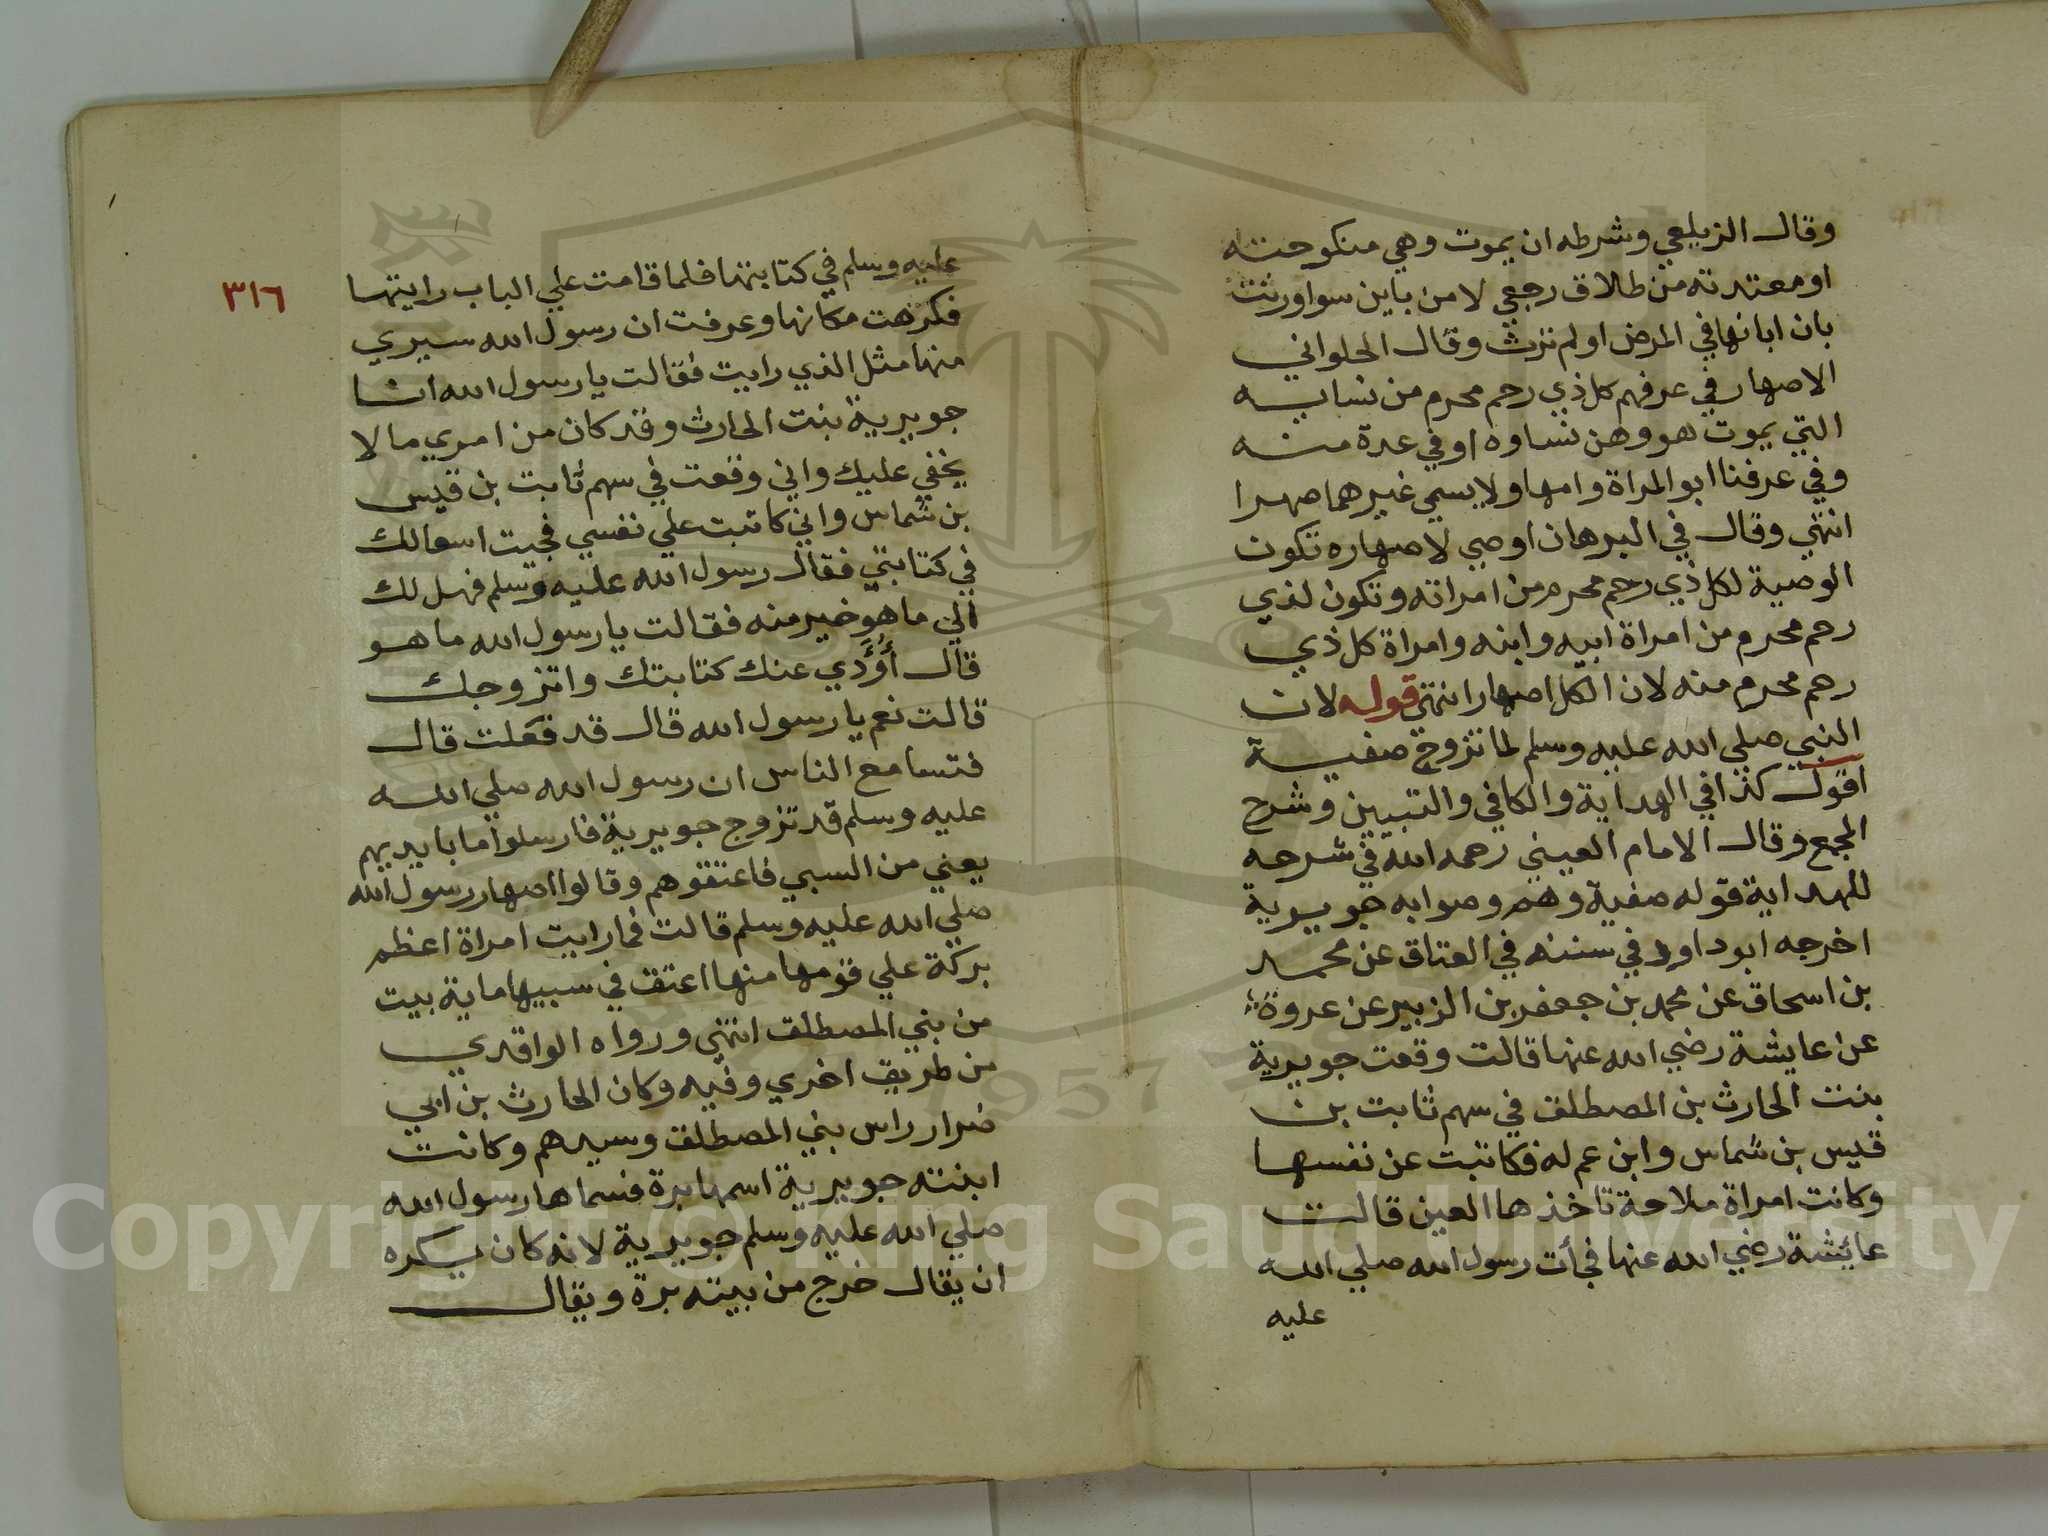 وقال الزيلعي وشرطه ان يموت وهي منكوحته
او معتدته من طلاق رجعي لا من باين سوا ورثت
بان ابانها في المرض او لم ترث وقال الحلواني
الاصهار في عرفهم كل ذي رحم محرم من نسايه
التي يموت هو وهن نساوه او في عدة منه
وفي عرفنا ابو المراة وامها ولا يسمي غيرهما صهرا
انتهي وقال في البرهان اوصي لاصهاره تكون
الوصية لكل ذي رحم محرم من امراته وتكون لذي
رحم محرم من امراة ابيه وابنه وامراة كل ذي
رحم محرم منه لان الكل اصهار انتهي قوله لان
النبي صلي الله عليه وسلم لما تزوج صفية
اقول كذا في الهداية والكافي والتبيين وشرح
المجمع وقال الامام العيني رحمه الله في شرحه
للهداية قوله صفية وهم وصوابه جويرية
اخرجه ابو داود في سننه في العتاق عن محمد
بن اسحاق عن محمد بن جعفر بن الزبير عن عروة
عن عايشة رضي الله عنها قالت وقعت جويرية
بنت الحارث بن المصطلق في سهم ثابت بن
قيس بن شماس وابن عم له فكاتبت عن نفسها
وكانت امراة ملاحة تاخذها العين قالت
عائشة رضي الله عنها فجأت رسول الله صلي الله
عليه
٣١٦
عليه وسلم في كتابتها فلما قامت علي الباب رايتها
فكرهت مكانها وعرفت ان رسول الله سيري
منها مثل الذي رايت فقالت يا رسول الله انا
جويرية بنت الحارث وقد كان من امري ما لا
يخفي عليك واني وقعت في سهم ثابت بن قيس
بن شماس واني كاتبت علي نفسي فجيت اسعالك
في كتابتي فقال رسول الله عليه وسلم فهل لك
الي ما هو خير منه فقالت يا رسول الله ما هو
قال أُؤَدي عنك كتابتك واتزوجك
قالت نعم يا رسول الله قال قد فعلت قال
فتسامع الناس ان رسول الله صلي الله
عليه وسلم قد تزوج جويرية فارسلوا ما بايديهم
يعني من السبي فاعتقوهم وقالوا اصهار رسول الله
صلي الله عليه وسلم قالت فما رايت امراة اعظم
بركة علي قومها منها اعتق في سبيها ماية بيت
من بني المصطلق انتهي ورواه الواقدي
من طريق اخري وفيه وكان الحارث بن ابي
ضرار راس بني المصطلق وسيدهم وكانت
ابنته جويرية اسمها برة فسماها رسول الله
صلي الله عليه وسلم جويرية لانه كان يكره
ان يقال خرج من بيته برة ويقال
Copyright © King Saud University
1957